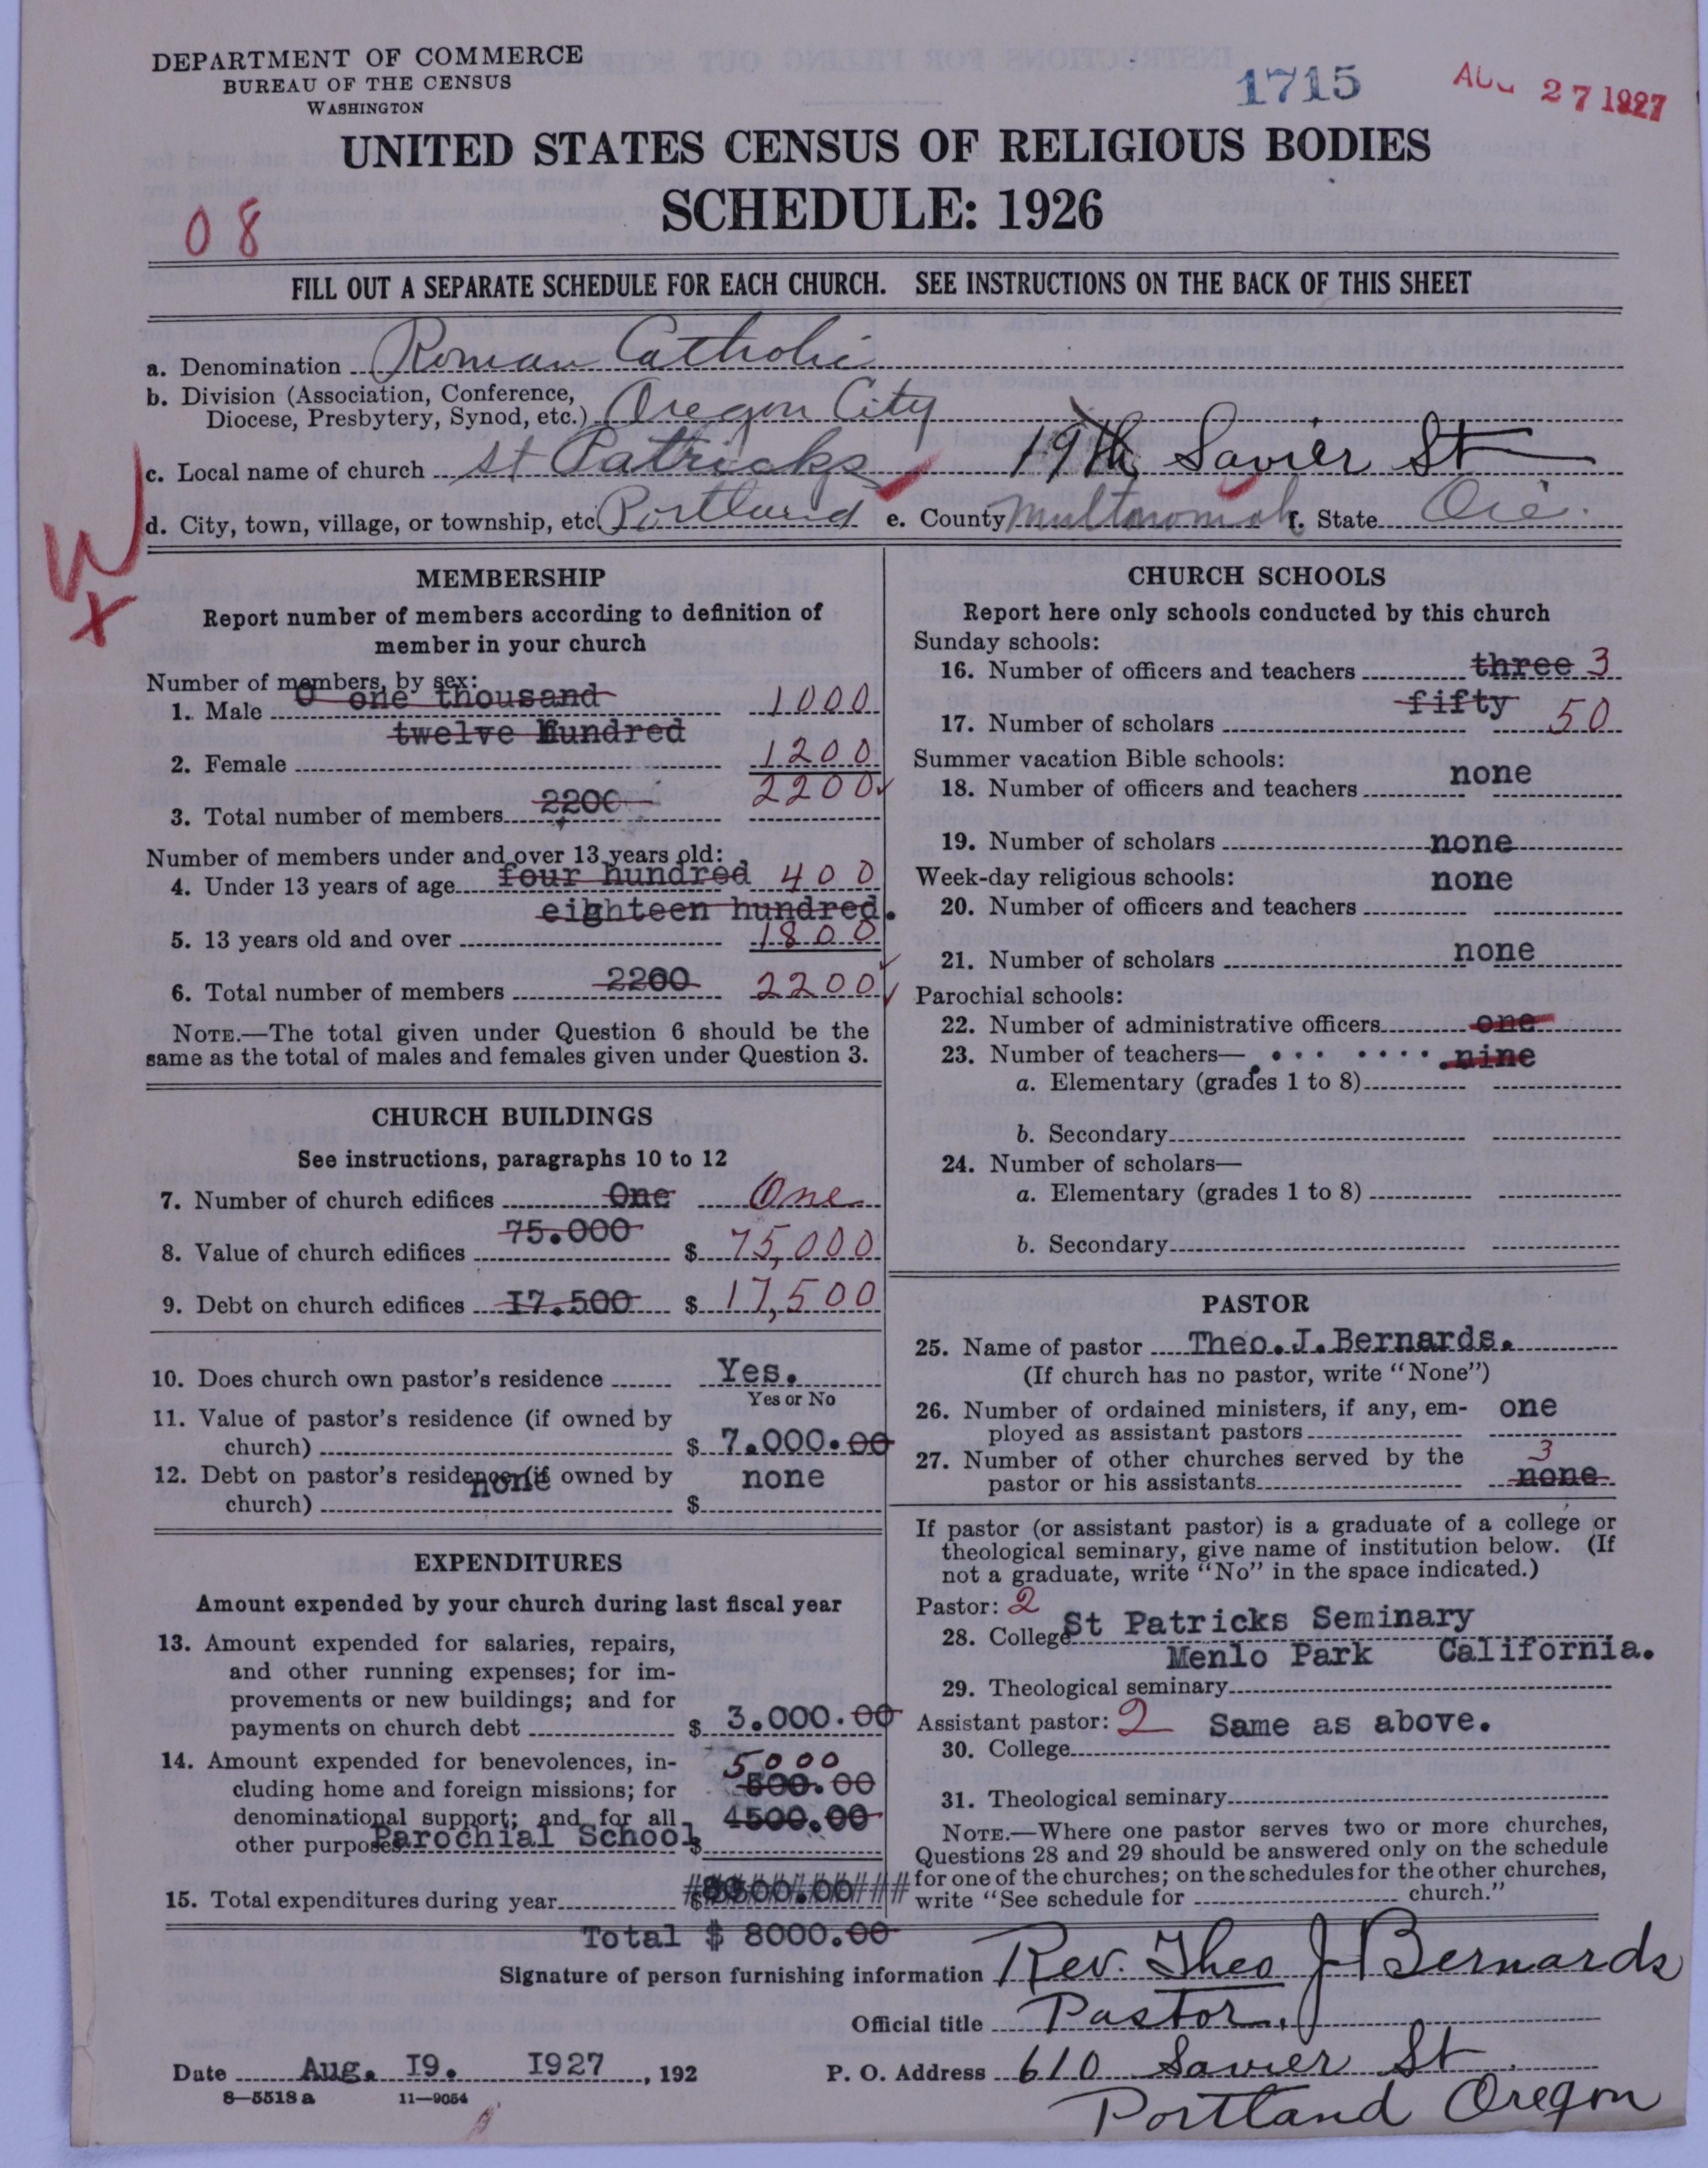 DEPARTMENT OF COMMERCE
BUREAU OF THE CENSUS
WASHINGTON
1715
AUG 27 1927
UNITED STATES CENSUS OF RELIGIOUS BODIES
SCHEDULE: 1926
08
FILL OUT A SEPARATE SCHEDULE FOR EACH CHURCH. SEE INSTRUCTIONS ON THE BACK OF THIS SHEET
a. Denomination Roman Catholic
b. Division (Association, Conference,
Diocese, Presbytery, Synod, etc.) Oregon City
c. Local name of church St Patricks 19th Savier St
d. City, town, village, or township, etc. Portland e. County Multnomah f. State Ore.
W
X
MEMBERSHIP
Report number of members according to definition of
member in your church
Number of members, by sex:
1. Male one thousand 1000
twelve Hundred
2. Female 1200
3. Total number of members 2200 2200
Number of members under and over 13 years old:
4. Under 13 years of age four hundred 400
eighteen hundred.
5. 13 years old and over 1800
6. Total number of members 2200 2200
NOTE.—The total given under Question 6 should be the
same as the total of males and females given under Question 3.
CHURCH BUILDINGS
See instructions, paragraphs 10 to 12
7. Number of church edifices One One
8. Value of church edifices 75.000 $ 75,000
9. Debt on church edifices I7.500 $ 17,500
10. Does church own pastor's residence Yes.
Yes or No
11. Value of pastor's residence (if owned by
church) $ 7.000.00
12. Debt on pastor's residence (if owned by none none
church) $
EXPENDITURES
Amount expended by your church during last fiscal year
13. Amount expended for salaries, repairs,
and other running expenses; for im-
provements or new buildings; and for
payments on church debt $ 3.000.00
14. Amount expended for benevolences, in- 5000
cluding home and foreign missions; for 500.00
denominational support; and for all 4500.00
other purposes Parochial School $
15. Total expenditures during year $
Total $ 8000.00
CHURCH SCHOOLS
Report here only schools conducted by this church
Sunday schools:
16. Number of officers and teachers three 3
17. Number of scholars fifty 50
Summer vacation Bible schools:
18. Number of officers and teachers none
19. Number of scholars none
Week-day religious schools: none
20. Number of officers and teachers
21. Number of scholars none
Parochial schools:
22. Number of administrative officers one
23. Number of teachers— nine
a. Elementary (grades 1 to 8)
b. Secondary
24. Number of scholars—
a. Elementary (grades 1 to 8)
b. Secondary
PASTOR
25. Name of pastor Theo.J.Bernards.
(If church has no pastor, write "None")
26. Number of ordained ministers, if any, em- one
ployed as assistant pastors
27. Number of other churches served by the 3
pastor or his assistants none
If pastor (or assistant pastor) is a graduate of a college or
theological seminary, give name of institution below. (If
not a graduate, write "No" in the space indicated.)
Pastor: 2
28. College St Patricks Seminary
Menlo Park California.
29. Theological seminary
Assistant pastor: 2 Same as above.
30. College
31. Theological seminary
NOTE.—Where one pastor serves two or more churches,
Questions 28 and 29 should be answered only on the schedule
for one of the churches; on the schedules for the other churches,
write "See schedule for church."
Signature of person furnishing information Rev. Theo J Bernards
Official title Pastor.
Date Aug. I9. I927, 192
P. O. Address 610 Savier St.
Portland Oregon
8-5518 a 11-9054